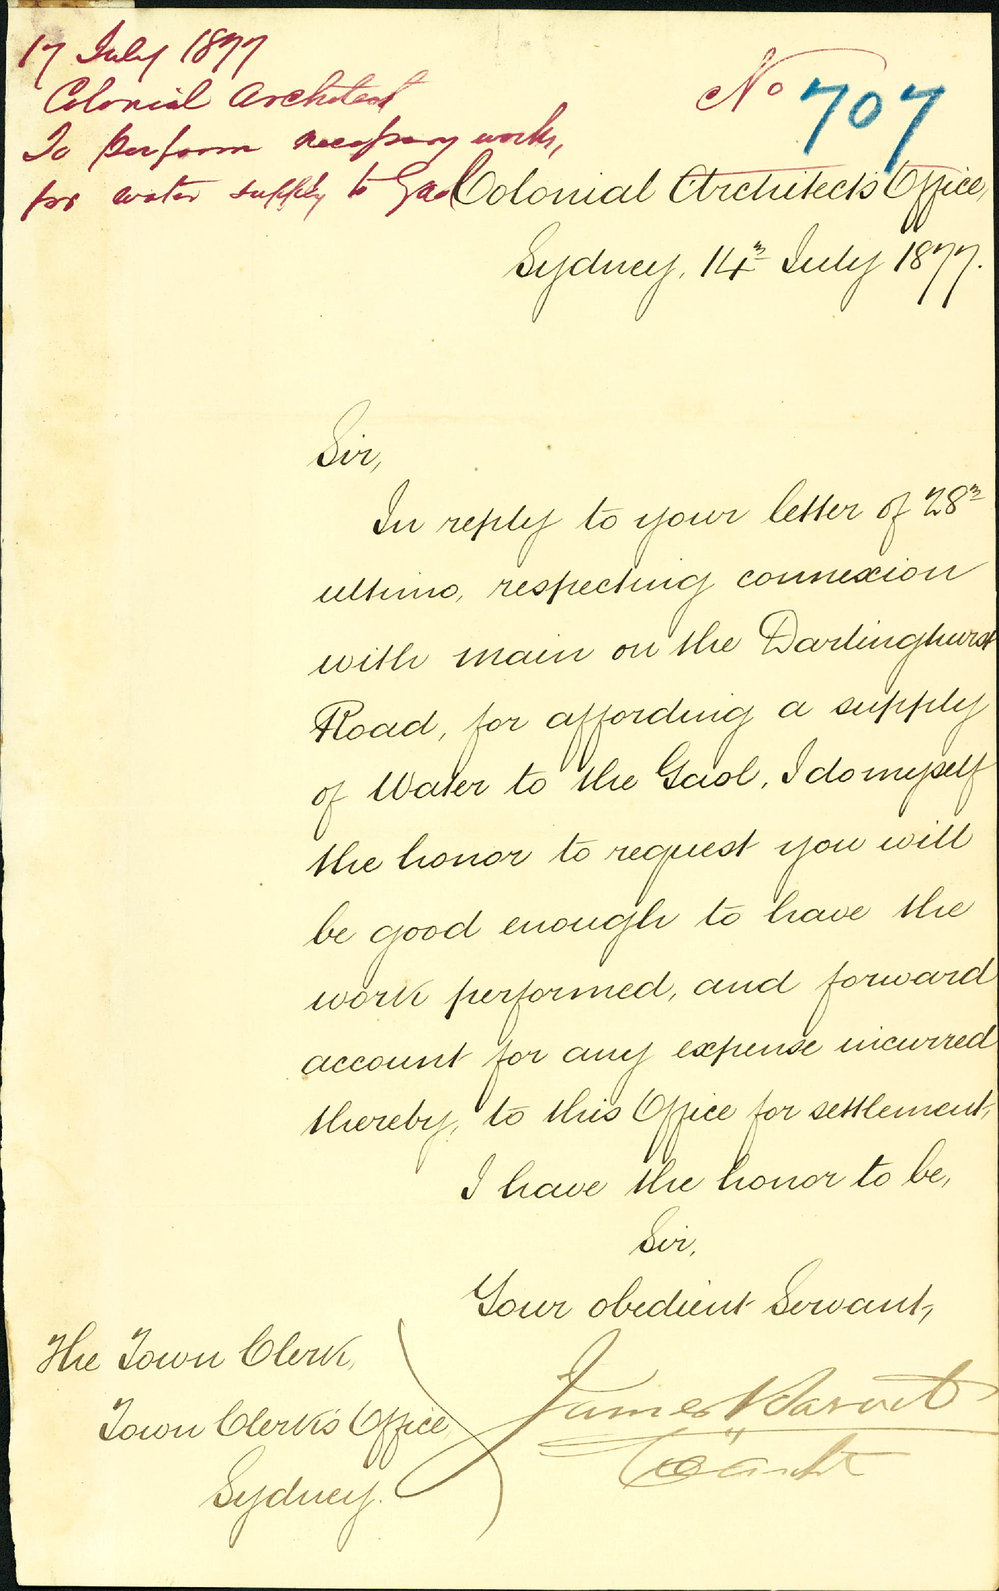 17 July 1877
Colonial Architect
To perform necessary works,
for water supply to Gaol
No 707
Colonial Architect's Office,
Sydney, 14th July 1877.
Sir,
In reply to your letter of 28th
ultimo, respecting connexion
with main on the Darlinghurst
Road, for affording a supply
of Water to the Gaol, I do myself
the honor to request you will
be good enough to have the
work performed, and forward
account for any expense incurred
thereby, to this Office for settlement,
I have the honor to be,
Sir,
Your obedient Servant,
James Barnet
Col Archt
The Town Clerk,
Town Clerk's Office
Sydney.